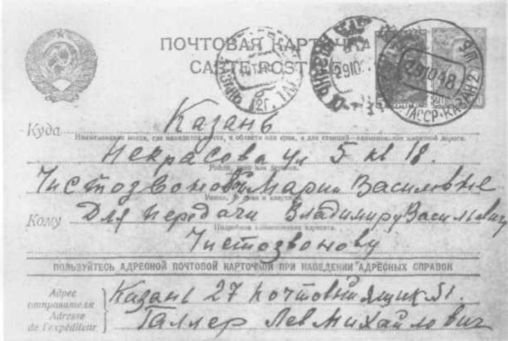 ПОЧТОВАЯ КАРТОЧКА
CARTE POSTALE
29.10.48
ТАССР·КАЗАНЬ 2
Куда Казань
Некрасова ул 5 кв 18.
Чистозвоновой Марии Васильевне
Кому Для передачи Владимиру Васильевичу
Подробное наименование адресата
Чистозвонову
ПОЛЬЗУЙТЕСЬ АДРЕСНОЙ ПОЧТОВОЙ КАРТОЧКОЙ ПРИ НАВЕДЕНИИ АДРЕСНЫХ СПРАВОК
Адрес отправителя
Adresse de l'expéditeur
Казань 27 почтовый ящик 51.
Галлер Лев Михайлович